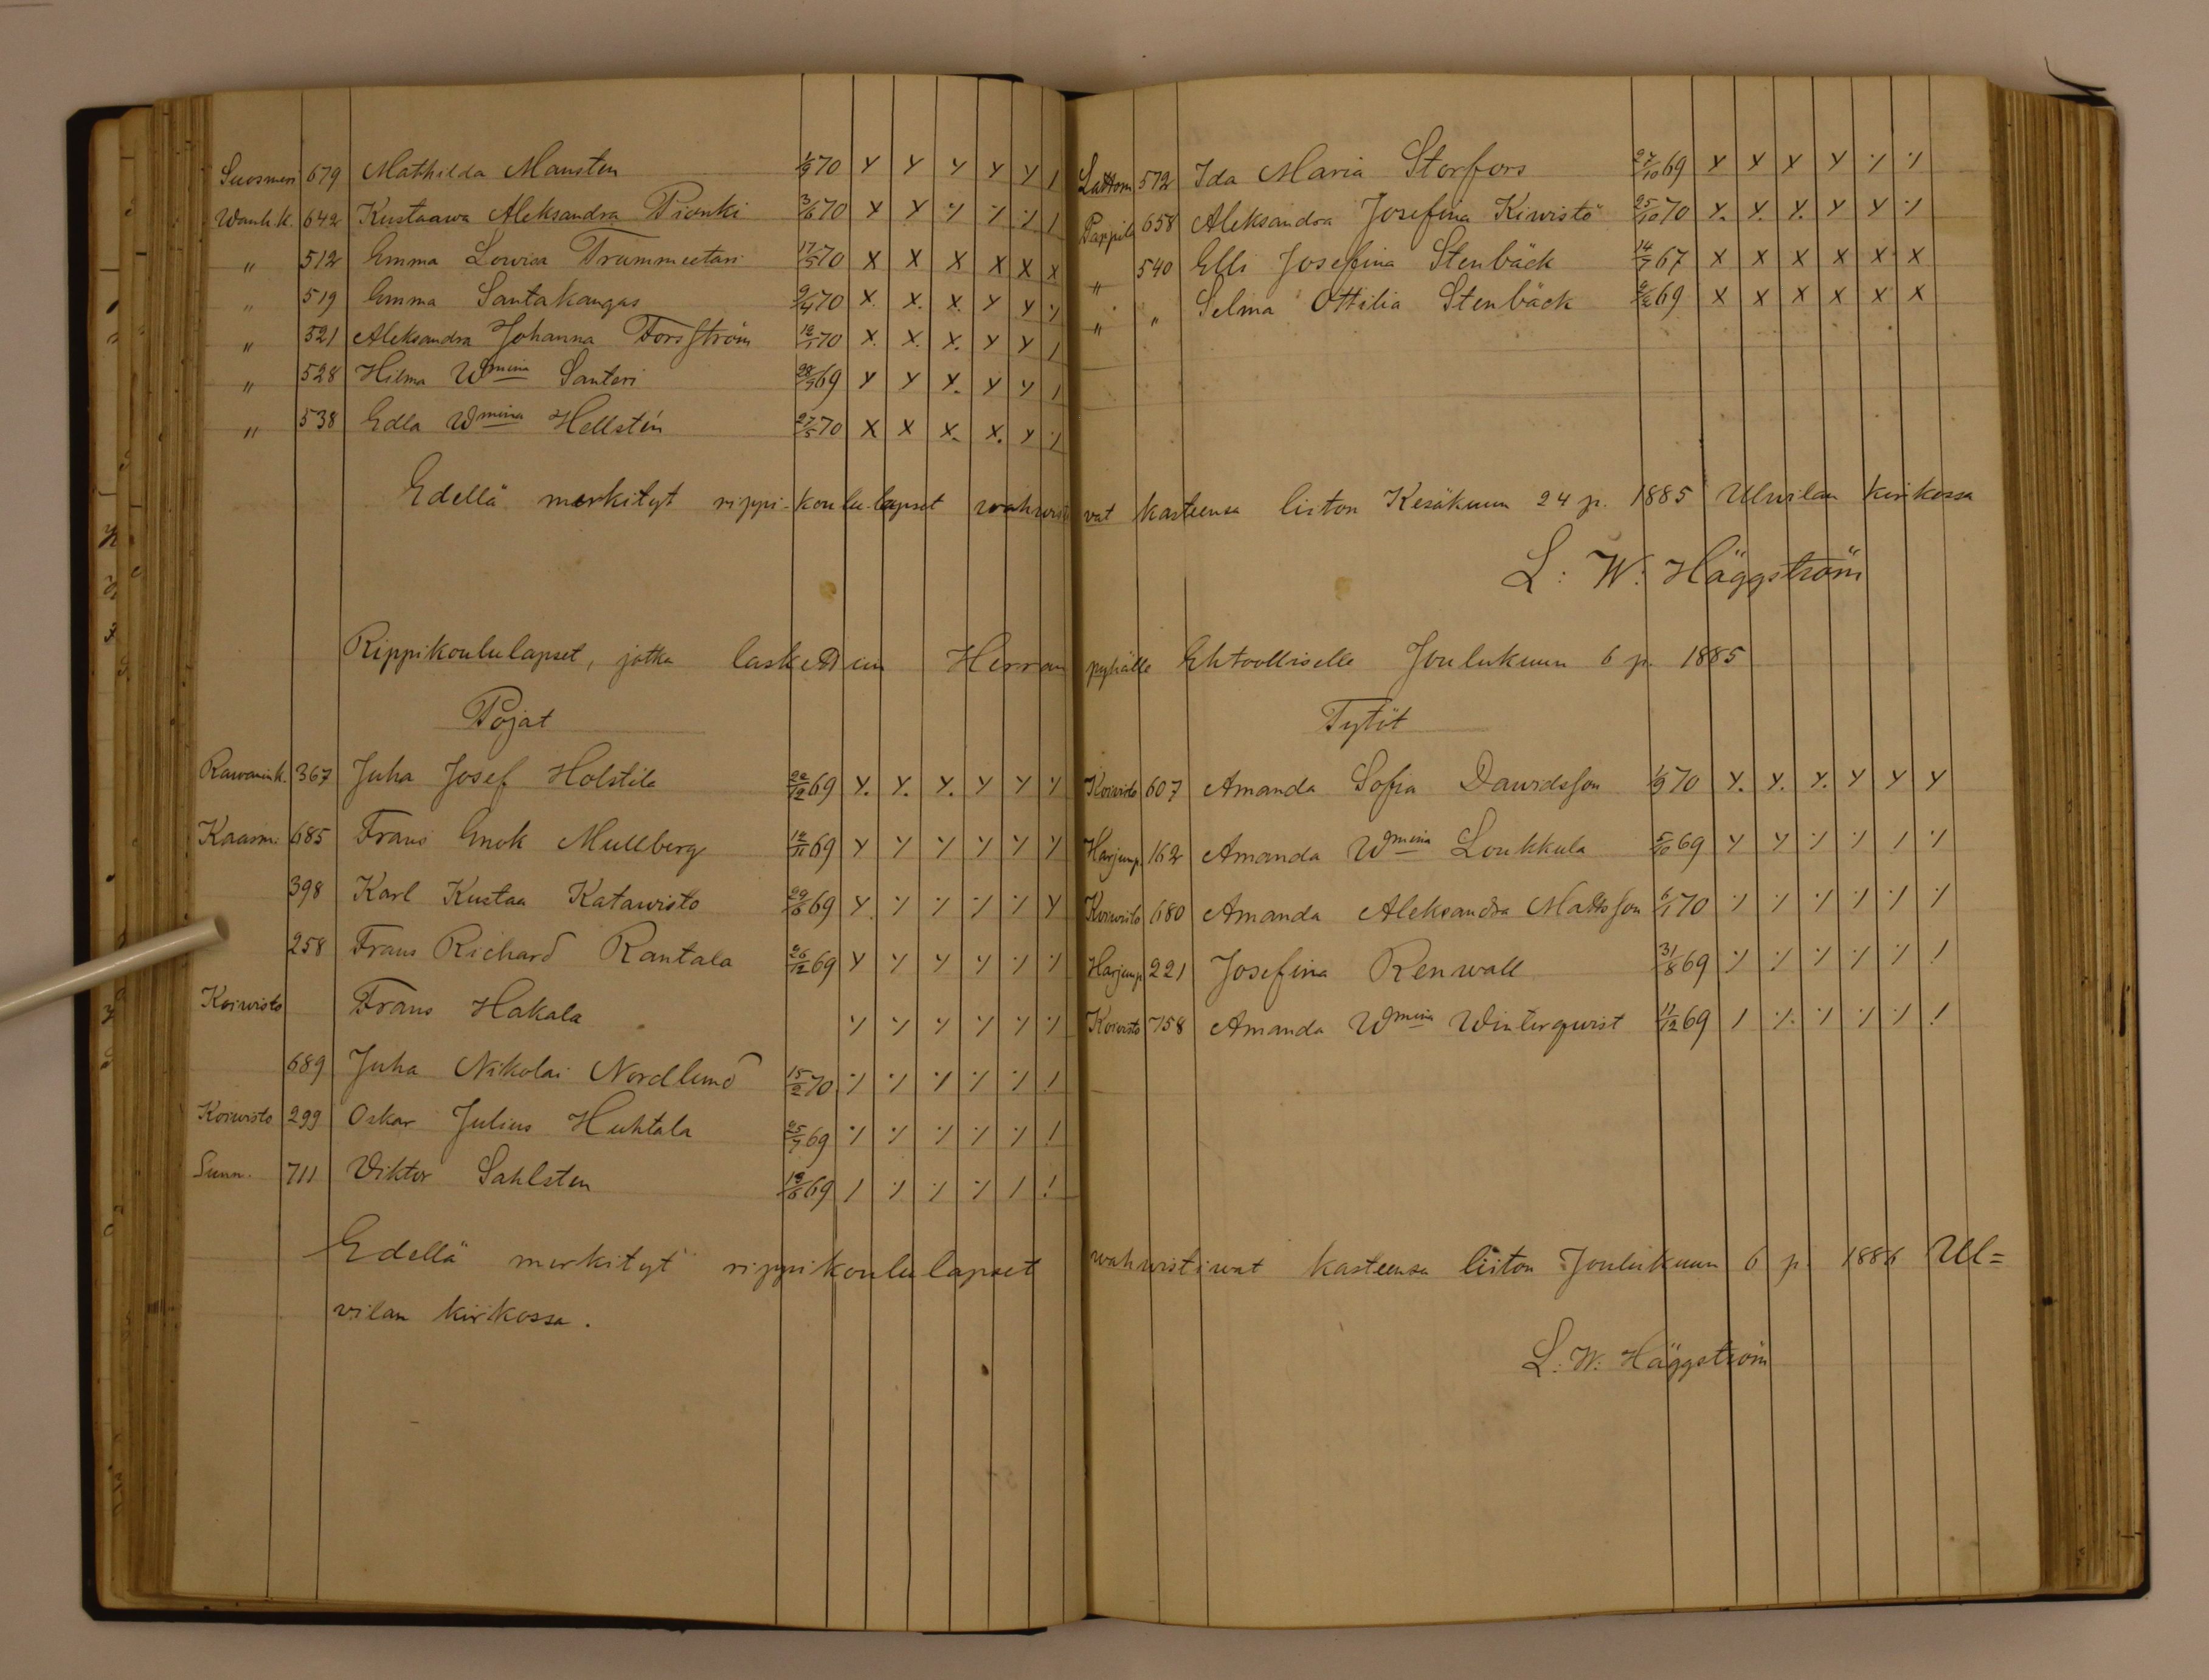 Suosmeri 679 Mathilda Mansten 1/9 70 Y Y Y Y Y /
Wanh.k. 642 Kustaawa Aleksandra Pionki 3/6 70 X X ⁒ ⁒ ⁒ /
" 512 Emma Lowisa Trummeetari 17/5 70 X X X X X X
" 519 Emma Santakangas 9/4 70 X. X. X. Y Y ⁒
" 521 Aleksandra Johanna Forsström 12/1 70 X. X. X. Y Y /
" 528 Hilma Wmina Santeri 28/9 69 Y Y X. Y Y /
" 538 Edla Wmina Hellstén 27/5 70 X X X. X. Y ⁒
Lattom 572 Ida Maria Storfors 27/10 69 Y X Y Y ⁒ ⁒
Pappil 658 Aleksandra Josefina Kiwistö 25/10 70 Y. Y. Y. Y Y ⁒
" 540 Elli Josefina Stenbäck 14/7 67 X X X X X X
" " Selma Ottilia Stenbäck 69 X X X X X X
Edellä merkityt rippi-koulu-lapset wahwistivat kasteensa liiton Kesäkuun 24 p. 1885 Ulwilan kirkossa
L: W: Häggström
Rippikoululapset, jotka laskettiin Herran pyhälle Ehtoolliselle Joulukuun 6 p. 1885
Pojat
Rawanink. 367 Juha Josef Holstila 22/12 69 Y. Y. Y. Y Y Y
Kaasm. 685 Frans Enok Mullberg 12/11 69 Y Y Y Y Y Y
398 Karl Kustaa Katawisto 29/6 69 Y. ⁒ ⁒ ⁒ ⁒ Y
258 Frans Richard Rantala 26/12 69 Y Y Y Y ⁒ ⁒
Koiwisto Frans Hakala ⁒ ⁒ Y ⁒ ⁒ ⁒
689 Juha Nikolai Nordlund 15/2 70 ⁒ ⁒ ⁒ ⁒ ⁒ /
Koiwisto 299 Oskar Julius Huhtala 25/7 69 ⁒ ⁒ ⁒ ⁒ ⁒ /
Sunn. 711 Viktor Sahlsten 12/6 69 / ⁒ ⁒ ⁒ / /
Tytöt
Koiwisto 607 Amanda Sofia Dawidsson 1/9 70 Y. Y. Y. Y Y Y
Harjunp. 162 Amanda Wmina Loukkula 5/10 69 Y Y ⁒ ⁒ / ⁒
Koiwisto 680 Amanda Aleksandra Mattsson 6/1 70 ⁒ ⁒ ⁒ ⁒ ⁒ ⁒
Harjunp. 221 Josefina Renwall 31/8 69 ⁒ ⁒ ⁒ ⁒ ⁒ /
Koiwisto 758 Amanda Wmina Winterqwist 11/12 69 / ⁒ ⁒ ⁒ ⁒ /
Edellä merkityt rippikoululapset wahwistiwat kasteensa liiton Joulukuun 6 p. 1886 Ul=
vilan kirkossa.
L. W. Häggström